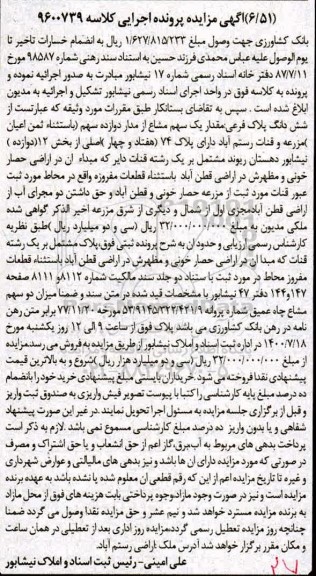 (۶/۵۱)اگهی مزایده پرونده اجرایی کلاسه ۹۶۰۰۷۳۹
بانک کشاورزی جهت وصول مبلغ ۱/۶۲۷/۸۱۵/۲۳۳ ریال به انضمام خسارات تاخیر تا
یوم الوصول علیه عباس محمدی فرزند حسین به استناد سند رهنی شماره ۹۸۵۸۷ مورخ
۸۷/۷/۱۱ دفتر خانه اسناد رسمی شماره ۱۷ نیشابور مبادرت به صدور اجرائیه نموده و
پرونده به کلاسه فوق در واحد اجرای اسناد رسمی نیشابور تشکیل و اجرائیه به مدیون
ابلاغ شده است . سپس به تقاضای بستانکار طبق مقررات مورد وثیقه که عبارتست از
شش دانگ پلاک فرعی مقدار یک سهم مشاع از مدار دوازده سهم (باستثناء ثمن اعیان
)مزرعه و قنات رستم آباد دارای پلاک ۷۴ (هفتاد و چهار )اصلی از بخش ۱۲(دوازده )
نیشابور دهستان ریوند مشتمل بر یک رشته قنات دایر که مبداء آن در اراضی حصار
خونی و مظهرش در اراضی قطن آباد باستثناء قطعات مفروزه واقع در محاط مورد ثبت
عبور قنات مورد ثبت از مزرعه حصار خونی و قطن آباد و حق داشتن دو مجرای آب از
اراضی قطن آباد مجری اول از شمال و دیگری از شرق مزرعه اخیر الذکر گواهی شده
ملکی مدیون به مبلغ ۳۲/۰۰۰/۰۰۰/۰۰۰ ریال (سی و دو میلیارد ریال )طبق نظریه
کارشناس رسمی ارزیابی و حدود آن به شرح پرونده ثبتی فوق پلاک مشتمل بر یک رشته
قنات که مبدا آن در اراضی حصار خونی و مظهرش در اراضی قطن آباد باستثناء قطعات
مفروز محاط در مورد ثبت با ستناد دو جلد سند مالکیت شماره ۸۱۱۲ و ۸۱۱۱ صفحه
۱۴۷و۱۴۴ دفتر ۴۷ نیشابور با مشخصات قید شده در متن سند و ضمنا میزان دو سهم
مشاع چاه عمیق شماره پروانه ۵۳۹۱۴۵/۳۲۲/۴۲۱/۹ مورخه ۷۷/۱۱/۲۰ برابر متن رهن
نامه در رهن بانک کشاورزی می باشد پلاک فوق از ساعت ۹ الی ۱۲ روز یکشنبه مورخ
۱۴۰۰/۷/۱۸ در اداره ثبت اسناد و املاک نیشابور از طریق مزایده به فروش می رسد.مزایده
از مبلغ ۳۲/۰۰۰/۰۰۰/۰۰۰ ریال (سی و دو میلیارد هزار ریال )شروع و به بالاترین قیمت
پیشنهادی نقدا فروخته می شود .خریداران بایستی مبلغ پیشنهادی خرید خود را بانضمام
ده درصد مبلغ پایه کارشناسی را کتبا با پیوست تصویر فیش واریزی به صندوق ثبت واریز
و قبل از برگزاری جلسه مزایده به مسئول اجرا تحویل نمایند .در غیر این صورت پیشنهاد
شفاهی و یا بدون واریز ده درصد مبلغ کارشناسی مسموع نمی باشد .لازم به ذکر است
پرداخت بدهی های مربوط به آب،برق،گاز اعم از حق انشعاب و یا حق اشتراک و مصرف
در صورتی که مورد مزایده دارای آن ها باشد و نیز بدهی های مالیاتی و عوارض شهرداری
و غیره تا تاریخ مزایده اعم از این که رقم قطعی آن معلوم شده یا نشده باشد به عهده برنده
مزایده است و نیز در صورت وجود مازاد،وجوه پرداختی بابت هزینه های فوق از محل مازاد
به برنده مزایده مسترد خواهد شد و نیم عشر و حق مزایده نقدا وصول می گردد ضمنا
چنانچه روز مزایده تعطیل رسمی گردد،مزایده روز اداری بعد از تعطیلی در همان ساعت
و مکان مقرر برگزار خواهد شد آدرس ملک اراضی رستم آباد.
علی امینی- رئیس ثبت اسناد و املاک نیشابور